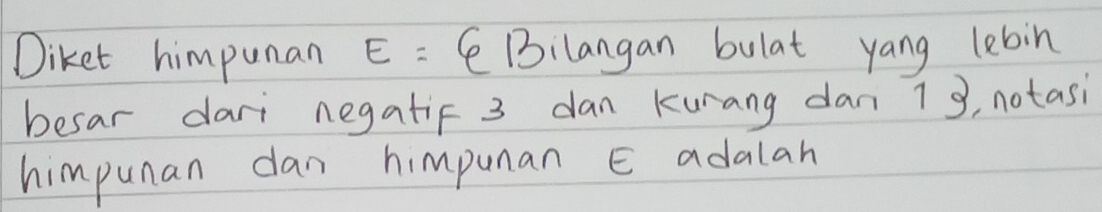 Diket himpunan E = { Bilangan bulat yang lebih
besar dari negatif 3 dan kurang dari 1 }, notasi
himpunan dari himpunan E adalah